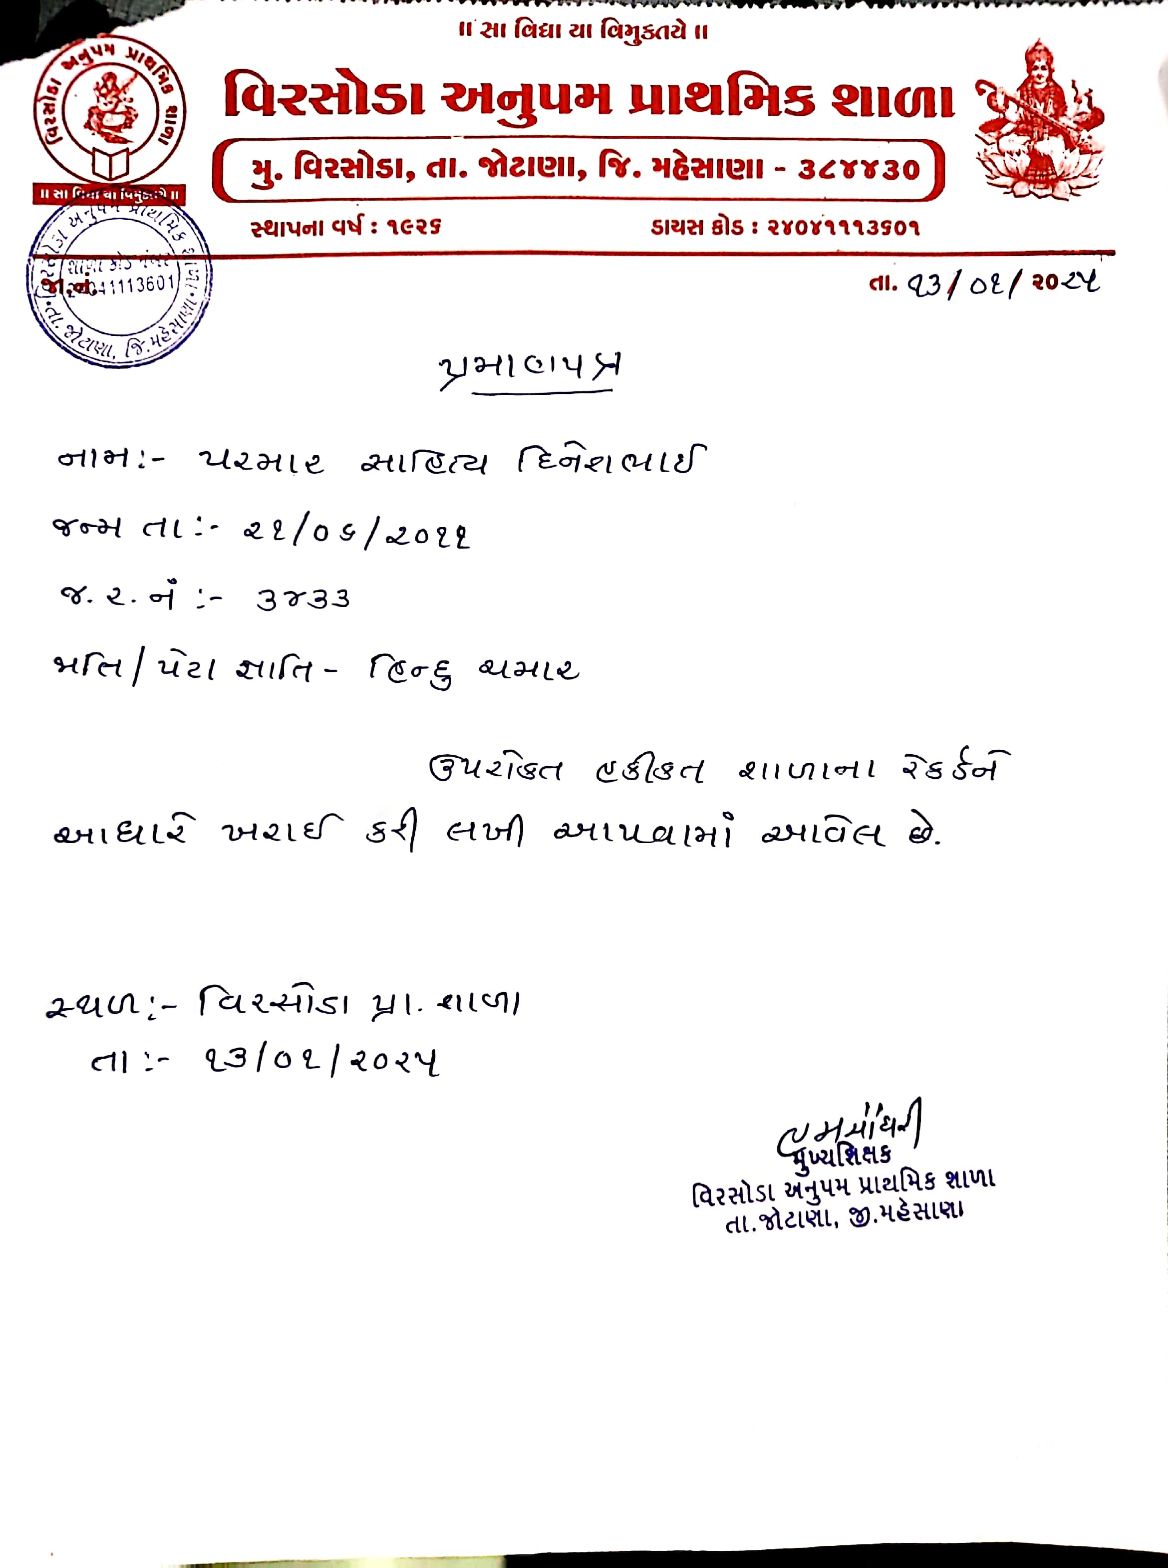 ॥ સા વિદ્યા યા વિમુક્તયે ॥
વિરસોડા અનુપમ પ્રાથમિક શાળા
વિરસોડા અનુપમ પ્રાથમિક શાળા
મુ. વિરસોડા, તા. જોટાણા, જિ. મહેસાણા - ૩૮૪૪૩૦
॥ સા વિદ્યા યા વિમુક્તયે ॥
સ્થાપના વર્ષ : ૧૯૨૬ ડાયસ કોડ : ૨૪૦૪૧૧૧૩૬૦૧
વિરસોડા અનુપમ પ્રાથમિક શાળા
શાળા કોડ નંબર
24041113601
તા. જોટાણા, જિ.મહેસાણા
જા.નં.
તા. ૧૩/૦૧/૨૦૨૫
પ્રમાણપત્ર
નામ:- પરમાર સાહિત્ય દિનેશભાઈ
જન્મ તા:- ૨૧/૦૬/૨૦૧૧
જ. ર. નં :- ૩૪૩૩
જાતિ/પેટા જ્ઞાતિ - હિન્દુ ચમાર
ઉપરોકત હકીકત શાળાના રેકર્ડને
આધારે ખરાઈ કરી લખી આપવામાં આવેલ છે.
સ્થળ:- વિરસોડા પ્રા. શાળા
તા:- ૧૩/૦૧/૨૦૨૫
મુખ્યશિક્ષક
વિરસોડા અનુપમ પ્રાથમિક શાળા
તા.જોટાણા, જી.મહેસાણા